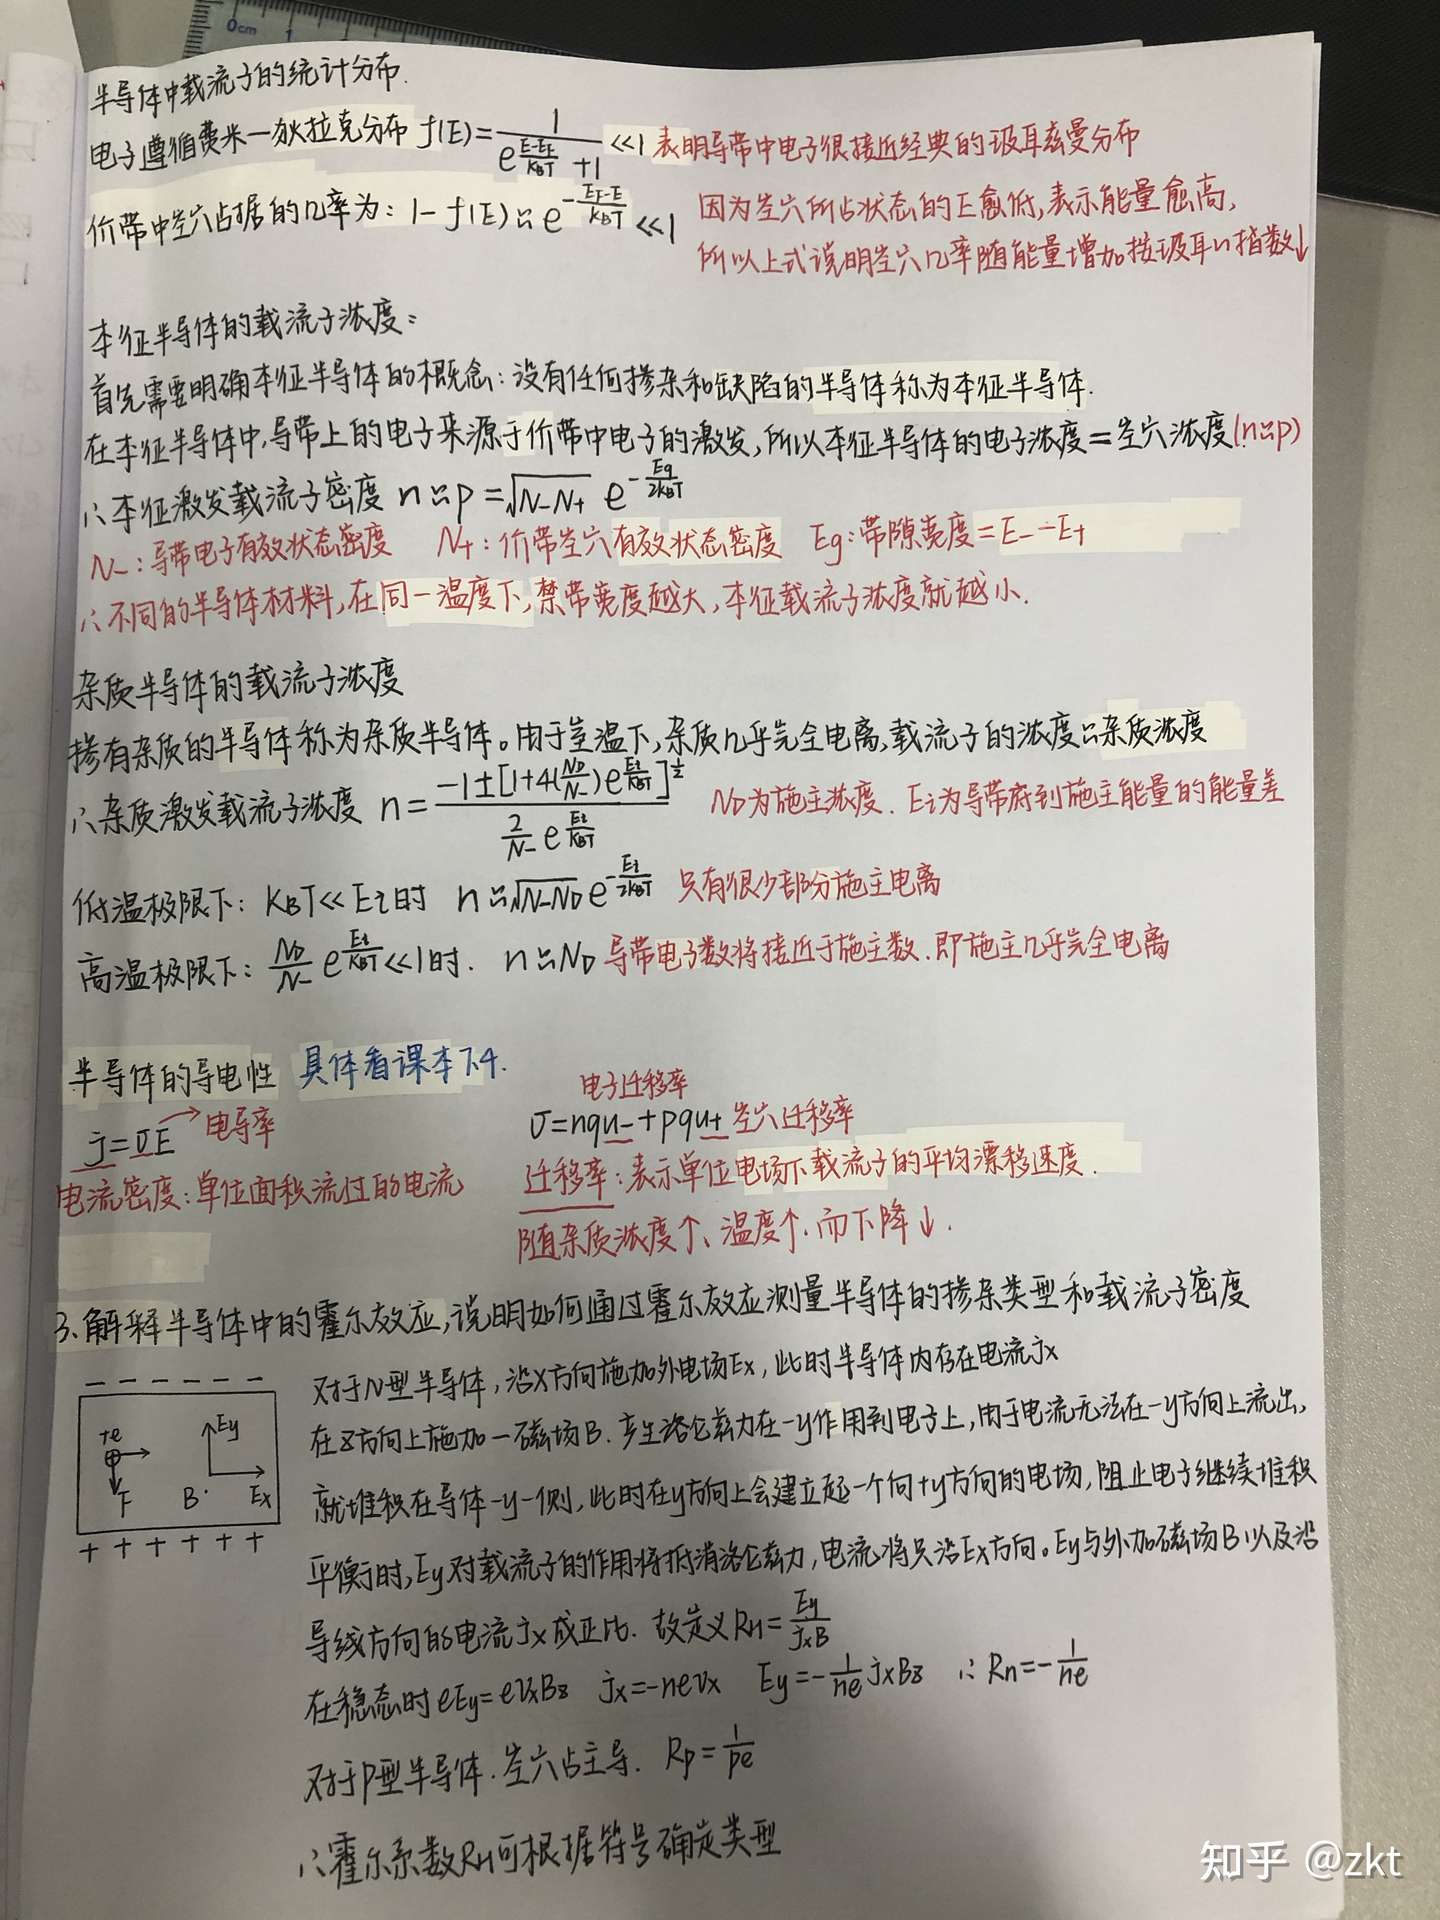 0cm 1
半导体中载流子的统计分布.
电子遵循费米一狄拉克分布 f(E)=1/(e^((E-E_F)/(K_BT))+1) <<1 表明导带中电子很接近经典的玻耳兹曼分布
价带中空穴占据的几率为: 1-f(E)≈e^(-(E_F-E)/(K_BT)) <<1 因为空穴所占状态的E愈低,表示能量愈高,
所以上式说明空穴几率随能量增加按玻耳兹指数↓
本征半导体的载流子浓度:
首先需要明确本征半导体的概念:没有任何掺杂和缺陷的半导体称为本征半导体.
在本征半导体中,导带上的电子来源于价带中电子的激发,所以本征半导体的电子浓度=空穴浓度(n≈p)
∴本征激发载流子密度 n≈p=√(N₋N₊) e^(-Eg/(2K_BT))
N₋:导带电子有效状态密度 N₊:价带空穴有效状态密度 Eg:带隙宽度=E₋-E₊
∴不同的半导体材料,在同一温度下,禁带宽度越大,本征载流子浓度就越小.
杂质半导体的载流子浓度
掺有杂质的半导体称为杂质半导体。由于室温下,杂质几乎完全电离,载流子的浓度≈杂质浓度
∴杂质激发载流子浓度 n=(-1±[1+4(N_D/N₋)e^(Ei/(K_BT))]^(1/2))/((2/N₋)e^(Ei/(K_BT))) N_D为施主浓度. Ei为导带底到施主能量的能量差
低温极限下: K_BT<<Ei时 n≈√(N₋N_D) e^(-Ei/(2K_BT)) 只有很少部分施主电离
高温极限下: (N_D/N₋)e^(Ei/(K_BT))<<1时. n≈N_D 导带电子数将接近于施主数.即施主几乎完全电离
半导体的导电性 具体看课本7.4.
电子迁移率
j=σE → 电导率 σ=nqu₋+pqu₊ 空穴迁移率
电流密度:单位面积流过的电流 迁移率:表示单位电场下载流子的平均漂移速度.
随杂质浓度↑、温度↑.而下降↓.
3.解释半导体中的霍尔效应,说明如何通过霍尔效应测量半导体的掺杂类型和载流子密度
对于N型半导体,沿X方向施加外电场Ex,此时半导体内存在电流jx
在z方向上施加一磁场B.产生洛仑兹力在-y作用到电子上,由于电流无法在-y方向上流出,
就堆积在导体-y一侧,此时在y方向上会建立起一个向+y方向的电场,阻止电子继续堆积
平衡时,Ey对载流子的作用将抵消洛仑兹力,电流将只沿Ex方向。Ey与外加磁场B以及沿
导线方向的电流jx成正比. 故定义R_H=Ey/(jxB)
在稳态时eEy=eVxBz jx=-neVx Ey=-(1/ne)jxBz ∴Rn=-1/ne
对于P型半导体.空穴占主导. Rp=1/pe
∴霍尔系数R_H可根据符号确定类型
- - - - - -
+e Ey
F B· Ex
+ + + + + +
知乎 @zkt